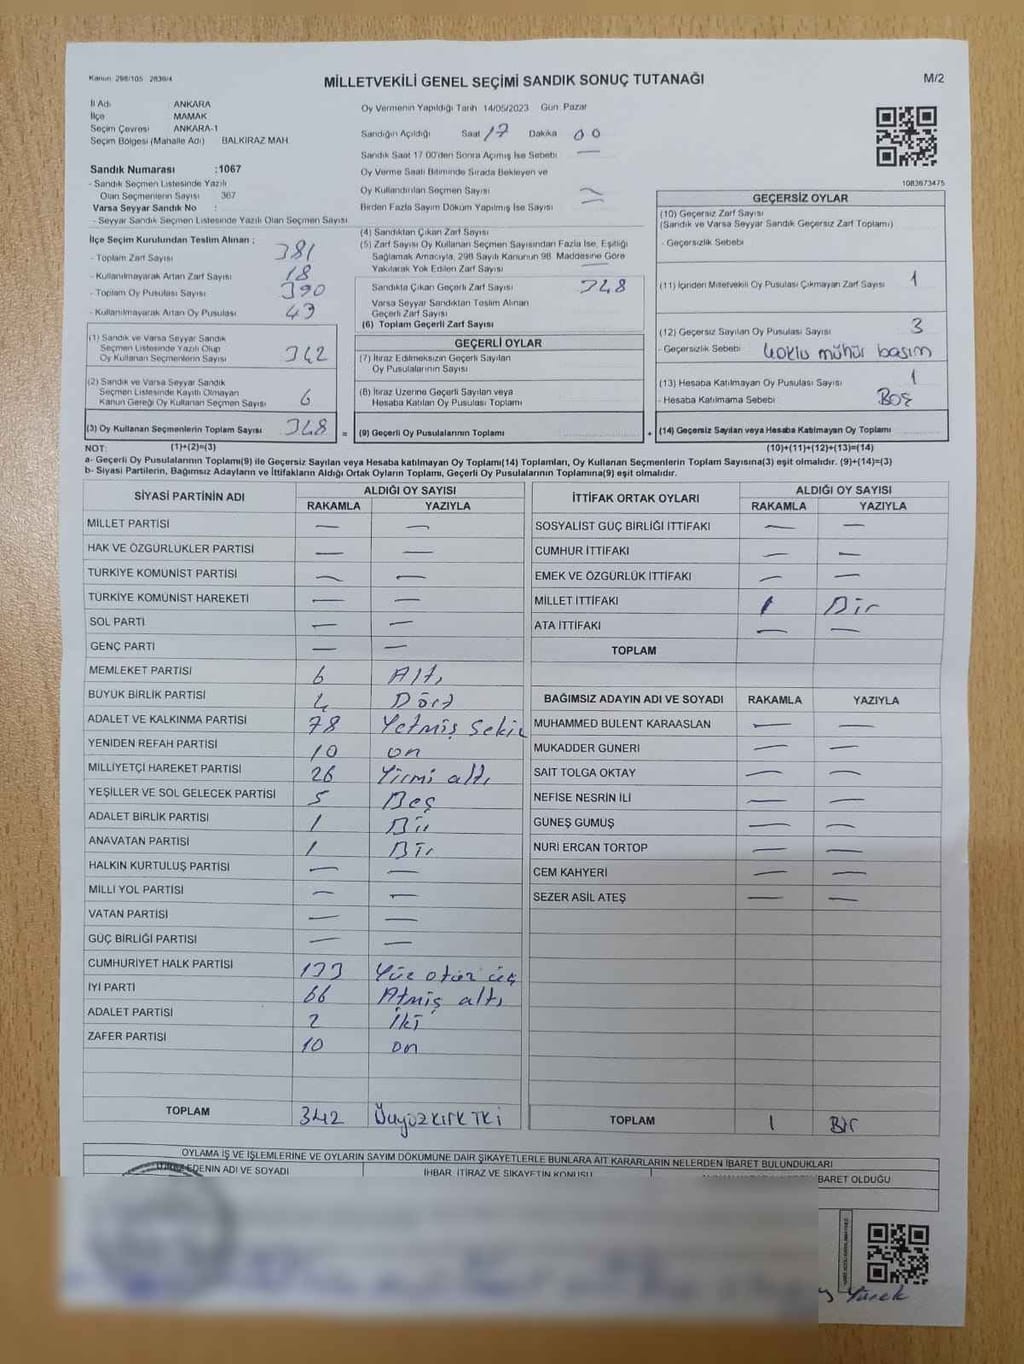 Kanun 298/105 2839/4
MİLLETVEKİLİ GENEL SEÇİMİ SANDIK SONUÇ TUTANAĞI
M/2
İl Adı ANKARA
İlçe MAMAK
Seçim Çevresi ANKARA-1
Seçim Bölgesi (Mahalle Adı) BALKIRAZ MAH.
Oy Vermenin Yapıldığı Tarih 14/05/2023 Gün Pazar
Sandığın Açıldığı Saat 17 Dakika 00
Sandık Saat 17:00'den Sonra Açılmış İse Sebebi —
Oy Verme Saati Bitiminde Sırada Bekleyen ve
Oy Kullandırılan Seçmen Sayısı —
Birden Fazla Sayım Döküm Yapılmış İse Sayısı —
Sandık Numarası :1067
- Sandık Seçmen Listesinde Yazılı
Olan Seçmenlerin Sayısı 367
Varsa Seyyar Sandık No :
- Seyyar Sandık Seçmen Listesinde Yazılı Olan Seçmen Sayısı
İlçe Seçim Kurulundan Teslim Alınan ;
- Toplam Zarf Sayısı 381
- Kullanılmayarak Artan Zarf Sayısı 18
- Toplam Oy Pusulası Sayısı 390
- Kullanılmayarak Artan Oy Pusulası 43
(1) Sandık ve Varsa Seyyar Sandık
Seçmen Listesinde Yazılı Olup
Oy Kullanan Seçmenlerin Sayısı 342
(2) Sandık ve Varsa Seyyar Sandık
Seçmen Listesinde Kayıtlı Olmayan
Kanun Gereği Oy Kullanan Seçmen Sayısı 6
(3) Oy Kullanan Seçmenlerin Toplam Sayısı 348 =
(4) Sandıktan Çıkan Zarf Sayısı
(5) Zarf Sayısı Oy Kullanan Seçmen Sayısından Fazla İse, Eşitliği
Sağlamak Amacıyla, 298 Sayılı Kanunun 98. Maddesine Göre
Yakılarak Yok Edilen Zarf Sayısı —
Sandıkta Çıkan Geçerli Zarf Sayısı 348
Varsa Seyyar Sandıktan Teslim Alınan
Geçerli Zarf Sayısı
(6) Toplam Geçerli Zarf Sayısı
GEÇERLİ OYLAR
(7) İtiraz Edilmeksizin Geçerli Sayılan
Oy Pusulalarının Sayısı
(8) İtiraz Üzerine Geçerli Sayılan veya
Hesaba Katılan Oy Pusulası Toplamı
(9) Geçerli Oy Pusulalarının Toplamı +
1083673475
GEÇERSİZ OYLAR
(10) Geçersiz Zarf Sayısı
(Sandık ve Varsa Seyyar Sandık Geçersiz Zarf Toplamı)
- Geçersizlik Sebebi
(11) İçinden Milletvekili Oy Pusulası Çıkmayan Zarf Sayısı 1
(12) Geçersiz Sayılan Oy Pusulası Sayısı 3
- Geçersizlik Sebebi Çoklu mühür basım
(13) Hesaba Katılmayan Oy Pusulası Sayısı 1
- Hesaba Katılmama Sebebi Boş
(14) Geçersiz Sayılan veya Hesaba Katılmayan Oy Toplamı
NOT: (1)+(2)=(3) (10)+(11)+(12)+(13)=(14)
a- Geçerli Oy Pusulalarının Toplamı(9) ile Geçersiz Sayılan veya Hesaba katılmayan Oy Toplamı(14) Toplamları, Oy Kullanan Seçmenlerin Toplam Sayısına(3) eşit olmalıdır. (9)+(14)=(3)
b- Siyasi Partilerin, Bağımsız Adayların ve İttifakların Aldığı Ortak Oyların Toplamı, Geçerli Oy Pusulalarının Toplamına(9) eşit olmalıdır.
SİYASİ PARTİNİN ADI ALDIĞI OY SAYISI
RAKAMLA YAZIYLA
MİLLET PARTİSİ — —
HAK VE ÖZGÜRLÜKLER PARTİSİ — —
TÜRKİYE KOMÜNİST PARTİSİ — —
TÜRKİYE KOMÜNİST HAREKETİ — —
SOL PARTİ — —
GENÇ PARTİ — —
MEMLEKET PARTİSİ 6 Altı
BÜYÜK BİRLİK PARTİSİ 4 Dört
ADALET VE KALKINMA PARTİSİ 78 Yetmiş Sekiz
YENİDEN REFAH PARTİSİ 10 on
MİLLİYETÇİ HAREKET PARTİSİ 26 Yirmi altı
YEŞİLLER VE SOL GELECEK PARTİSİ 5 Beş
ADALET BİRLİK PARTİSİ 1 Bir
ANAVATAN PARTİSİ 1 Bir
HALKIN KURTULUŞ PARTİSİ — —
MİLLİ YOL PARTİSİ — —
VATAN PARTİSİ — —
GÜÇ BİRLİĞİ PARTİSİ — —
CUMHURİYET HALK PARTİSİ 133 Yüz otuz üç
İYİ PARTİ 66 Atmış altı
ADALET PARTİSİ 2 İki
ZAFER PARTİSİ 10 on
TOPLAM 342 Üçyüzkırk İki
İTTİFAK ORTAK OYLARI ALDIĞI OY SAYISI
RAKAMLA YAZIYLA
SOSYALİST GÜÇ BİRLİĞİ İTTİFAKI — —
CUMHUR İTTİFAKI — —
EMEK VE ÖZGÜRLÜK İTTİFAKI — —
MİLLET İTTİFAKI 1 Bir
ATA İTTİFAKI — —
TOPLAM
BAĞIMSIZ ADAYIN ADI VE SOYADI RAKAMLA YAZIYLA
MUHAMMED BÜLENT KARAASLAN — —
MUKADDER GÜNERİ — —
SAİT TOLGA OKTAY — —
NEFİSE NESRİN İLİ — —
GÜNEŞ GÜMÜŞ — —
NURİ ERCAN TORTOP — —
CEM KAHYERİ — —
SEZER ASİL ATEŞ — —
TOPLAM 1 Bir
OYLAMA İŞ VE İŞLEMLERİNE VE OYLARIN SAYIM DÖKÜMÜNE DAİR ŞİKAYETLERLE BUNLARA AİT KARARLARIN NELERDEN İBARET BULUNDUKLARI
İTİRAZ EDENİN ADI VE SOYADI İHBAR, İTİRAZ VE ŞİKAYETİN KONUSU BARET OLDUĞU
Yürek